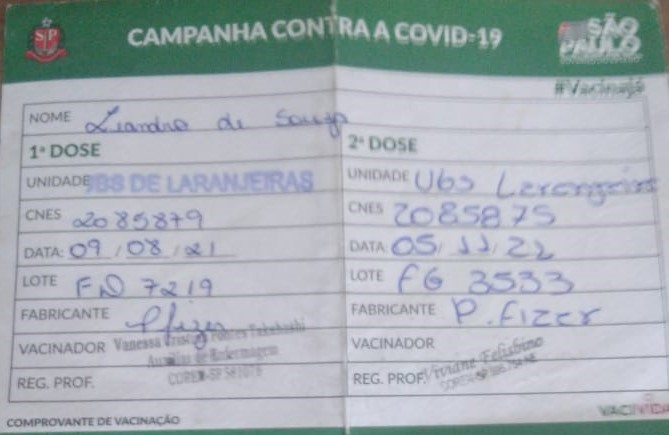 SP
CAMPANHA CONTRA A COVID-19
SÃO
PAULO
#VacinaJá
NOME Leandro de Souza
1ª DOSE
UNIDADE UBS DE LARANJEIRAS
CNES 2085879
DATA: 09/08/21
LOTE FD 7219
FABRICANTE Pfizer
VACINADOR Vanessa Cristina Takahashi
Auxiliar de Enfermagem
REG. PROF. COREN-SP 581078
2ª DOSE
UNIDADE Ubs Larangeiras
CNES 2085875
DATA 05/11/22
LOTE FG 3533
FABRICANTE P.fizer
VACINADOR
REG. PROF. Viviane Felisbino
COREN-SP
COMPROVANTE DE VACINAÇÃO
VACIVIDA